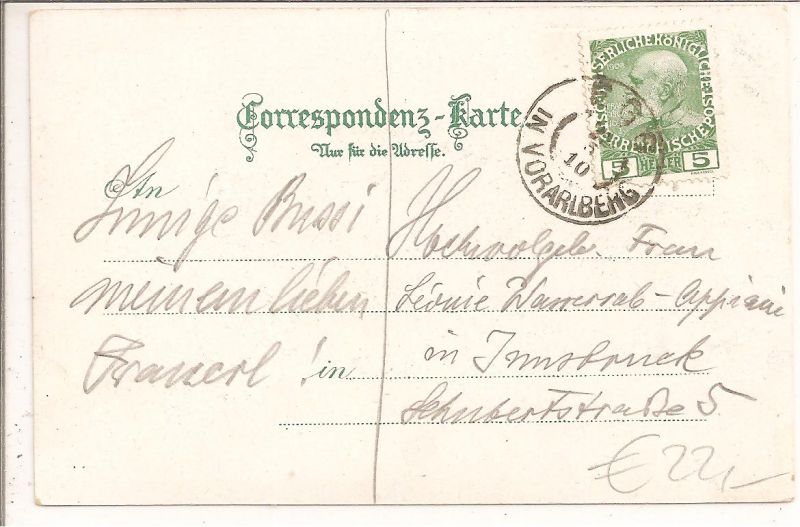 Correspondenz-Karte
Nur für die Adresse.
KAISERLICHE KÖNIGLICHE
ÖSTERREICHISCHE POST
1908
5 HELLER 5
IN VORARLBERG
10
An
Innige Bussi
meinem lieben
Frauerl! in
Hochwolgeb. Frau
Leonie Wasserrab-Appiani
in Innsbruck
Schubertstraße 5
€ 22,-